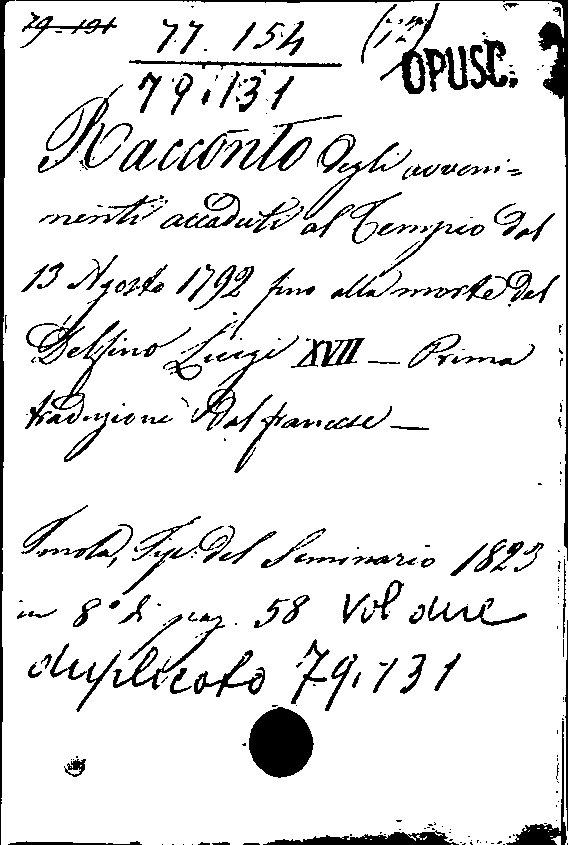 79.191 77.154
OPUSC.
79.131
Racconto degli avveni=
menti accaduti al Tempio dal
13 Agosto 1792 fino alla morte del
Delfino Luigi XVII — Prima
traduzione dal francese —
Imola, Tip. del Seminario 1823
in 8° di pag. 58 Vol due
duplicato 79.131